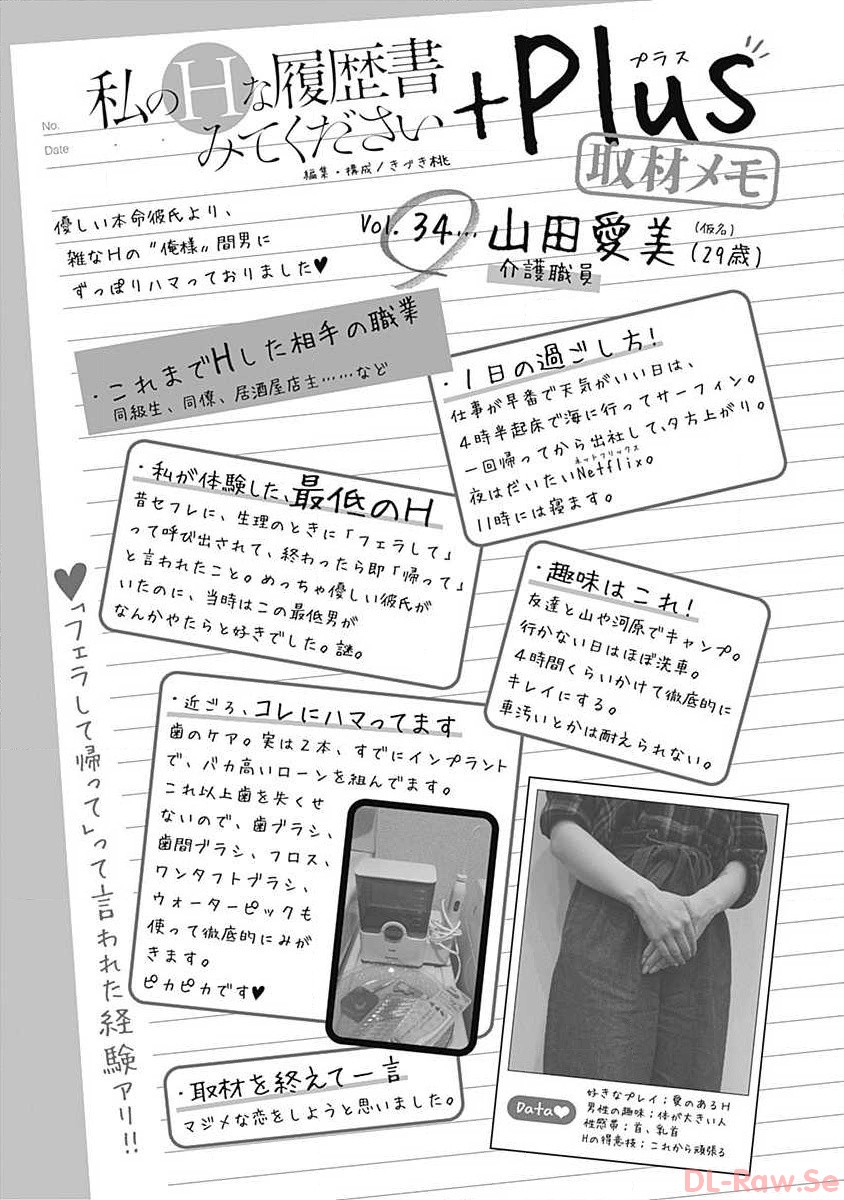 No.
Date
私のHな履歴書
みてください
+Plus
プラス
編集・構成/きづき桃
取材メモ
優しい本命彼氏より、
雑なHの"俺様"間男に
ずっぽりハマっておりました♥
Vol.34… 山田愛美 (仮名) (29歳)
介護職員
・これまでHした相手の職業
同級生、同僚、居酒屋店主……など
・1日の過ごし方!
仕事が早番で天気がいい日は、
4時半起床で海に行ってサーフィン。
一回帰ってから出社して、夕方上がり。
夜はだいたいNetflix。
ネットフリックス
11時には寝ます。
・私が体験した、最低のH
昔セフレに、生理のときに「フェラして」
って呼び出されて、終わったら即「帰って」
と言われたこと。めっちゃ優しい彼氏が
いたのに、当時はこの最低男が
なんかやたらと好きでした。謎。
・趣味はこれ!
友達と山や河原でキャンプ。
行かない日はほぼ洗車。
4時間くらいかけて徹底的に
キレイにする。
車汚いとかは耐えられない。
♥「フェラして帰って」って言われた経験アリ!!
・近ごろ、コレにハマってます
歯のケア。実は2本、すでにインプラント
で、バカ高いローンを組んでます。
これ以上歯を失くせ
ないので、歯ブラシ、
歯間ブラシ、フロス、
ワンタフトブラシ、
ウォーターピックも
使って徹底的にみが
きます。
ピカピカです♥
・取材を終えて一言
マジメな恋をしようと思いました。
Data♥
好きなプレイ;愛のあるH
男性の趣味;体が大きい人
性感帯;首、乳首
Hの得意技;これから頑張る
DL-Raw.Se